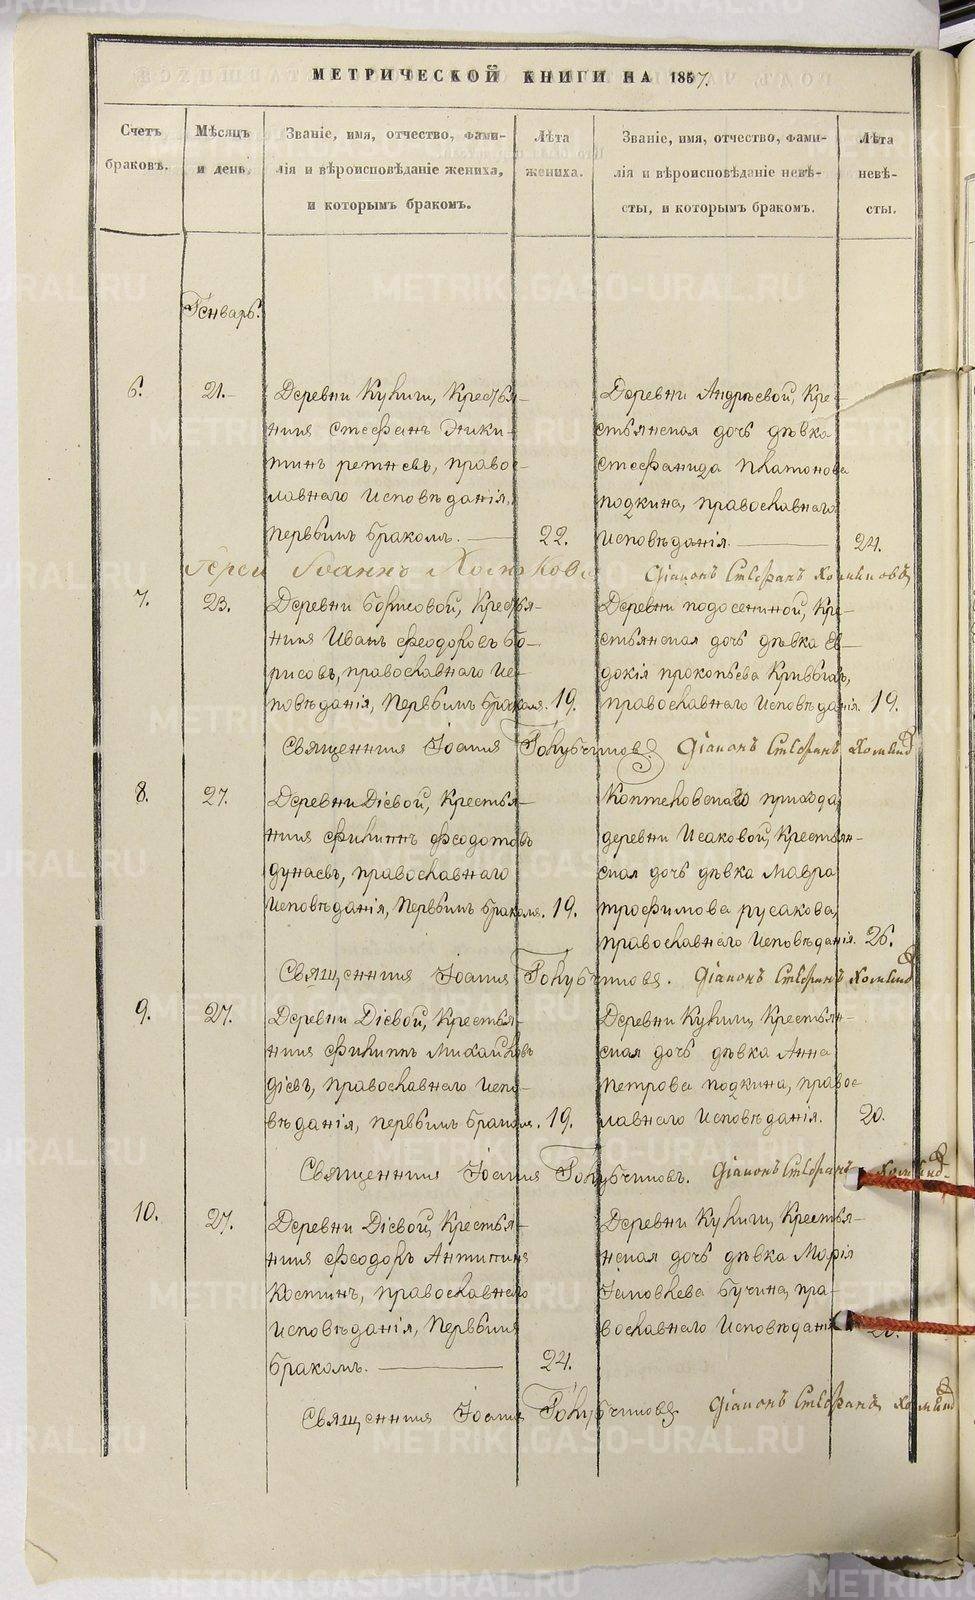 МЕТРИЧЕСКОЙ КНИГИ НА 1857.
Счетъ браковъ.
Мѣсяцъ и день.
Званіе, имя, отчество, фами-
лія и вѣроисповѣданіе жениха,
и которымъ бракомъ.
Лѣта жениха.
Званіе, имя, отчество, фами-
лія и вѣроисповѣданіе невѣ-
сты, и которымъ бракомъ.
Лѣта невѣ-
сты.
Генварь.
6. 21.
Деревни Кулиги, Крестья-
нинъ Стефанъ Ники-
тинъ ретневъ, право-
славнаго Исповѣданія,
первымъ бракомъ. 22.
Деревни Андреевой, Кре-
стьянская дочь дѣвка
Стефанида Платонова
подкина, православнаго
Исповѣданія. 24.
Іерей Іоаннъ
Діаконъ Стефанъ
7. 23.
Деревни Борисовой, Крестья-
нинъ Иванъ Феодоровъ Бо-
рисовъ, православнаго Ис-
повѣданія, Первымъ бракомъ. 19.
Деревни подосениной, Кре-
стьянская дочь дѣвка Ев-
докія прокопьева
православнаго Исповѣданія. 19.
Священникъ Іоаннъ Голубчиковъ
Діаконъ Стефанъ
8. 27.
Деревни Діевой, Крестья-
нинъ Филиппъ Феодотовъ
дунаевъ, православнаго
Исповѣданія, Первымъ бракомъ. 19.
Коптеловскаго прихода
деревни Исаковой, Крестьян-
ская дочь дѣвка Мавра
трофимова русакова,
православнаго Исповѣданія. 26.
Священникъ Іоаннъ Голубчиковъ.
Діаконъ Стефанъ
9. 27.
Деревни Діевой, Крестья-
нинъ Филиппъ Михайловъ
діевъ, православнаго Испо-
вѣданія, первымъ бракомъ. 19.
Деревни Кулиги, Крестьян-
ская дочь дѣвка Анна
Петрова подкина, право-
славнаго Исповѣданія. 20.
Священникъ Іоаннъ Голубчиковъ.
Діаконъ Стефанъ
10. 27.
Деревни Діевой, Крестья-
нинъ Феодоръ Антипинъ
Костинъ, православнаго
Исповѣданія, Первымъ
бракомъ. 24.
Деревни Кулиги, Крестья-
нская дочь дѣвка Марія
Іаковлева Бучина, пра-
вославнаго Исповѣданія
Священникъ Іоаннъ Голубчиковъ
Діаконъ Стефанъ
METRIKI.GASO-URAL.RU